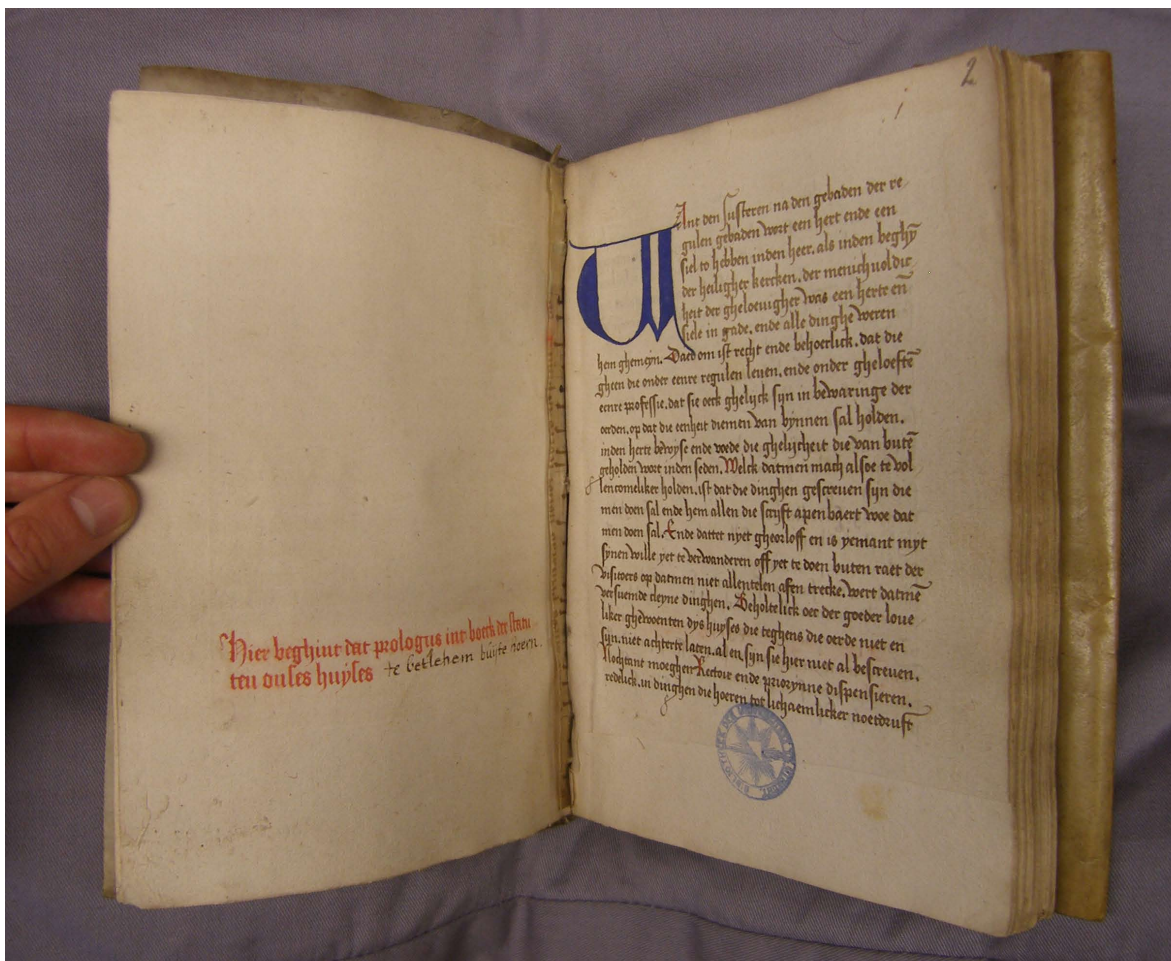 Hier beghint dat prologus int boeck der statu
ten onses huyses te betlehem buyte hoern.
2
i
WAnt den susteren na den gebaden der re
gulen gebaden wort een hert ende een
siel to hebben inden heer. als inden beghȳ
der heiligher kercken. der menichuoldic
heit der gheloeuigher was een herte eñ
siele in gade. ende alle dinghe weren
hem ghemeyn. Daer om ist recht ende behoerlick. dat die
gheen die onder eenre regulen leuen. ende onder gheloeftē
eenre professie. dat sie oeck ghelyck syn in bewaringe der
oerden. op dat die eenheit diemen van bynnen sal holden.
inden herte bewyse ende voede die ghelycheit die van butē
geholden wort inden seden. Welck datmen mach alsoe te vol
lencomeliker holden. ist dat die dinghen gescreuen syn die
men doen sal ende hem allen die scryft apenbaert woe dat
men doen sal. Ende dattet nyet gheorloff en is yemant myt
synen wille yet te verwanderen off yet te doen buten raet der
visitoers op datmen niet allentelen afen trecke. wert datmē
versuemde cleyne dinghen. Beholtelick oer der goeder loue
liker ghewoenten dys huyses die teghens die oerde niet en
syn. niet achterte laten. al en syn sie hier niet al bescreuen.
Nochtant moeghen Rectoir ende priorynne dispensieren.
redelick. in dinghen die hoeren tot lichaemlicker noetdruft